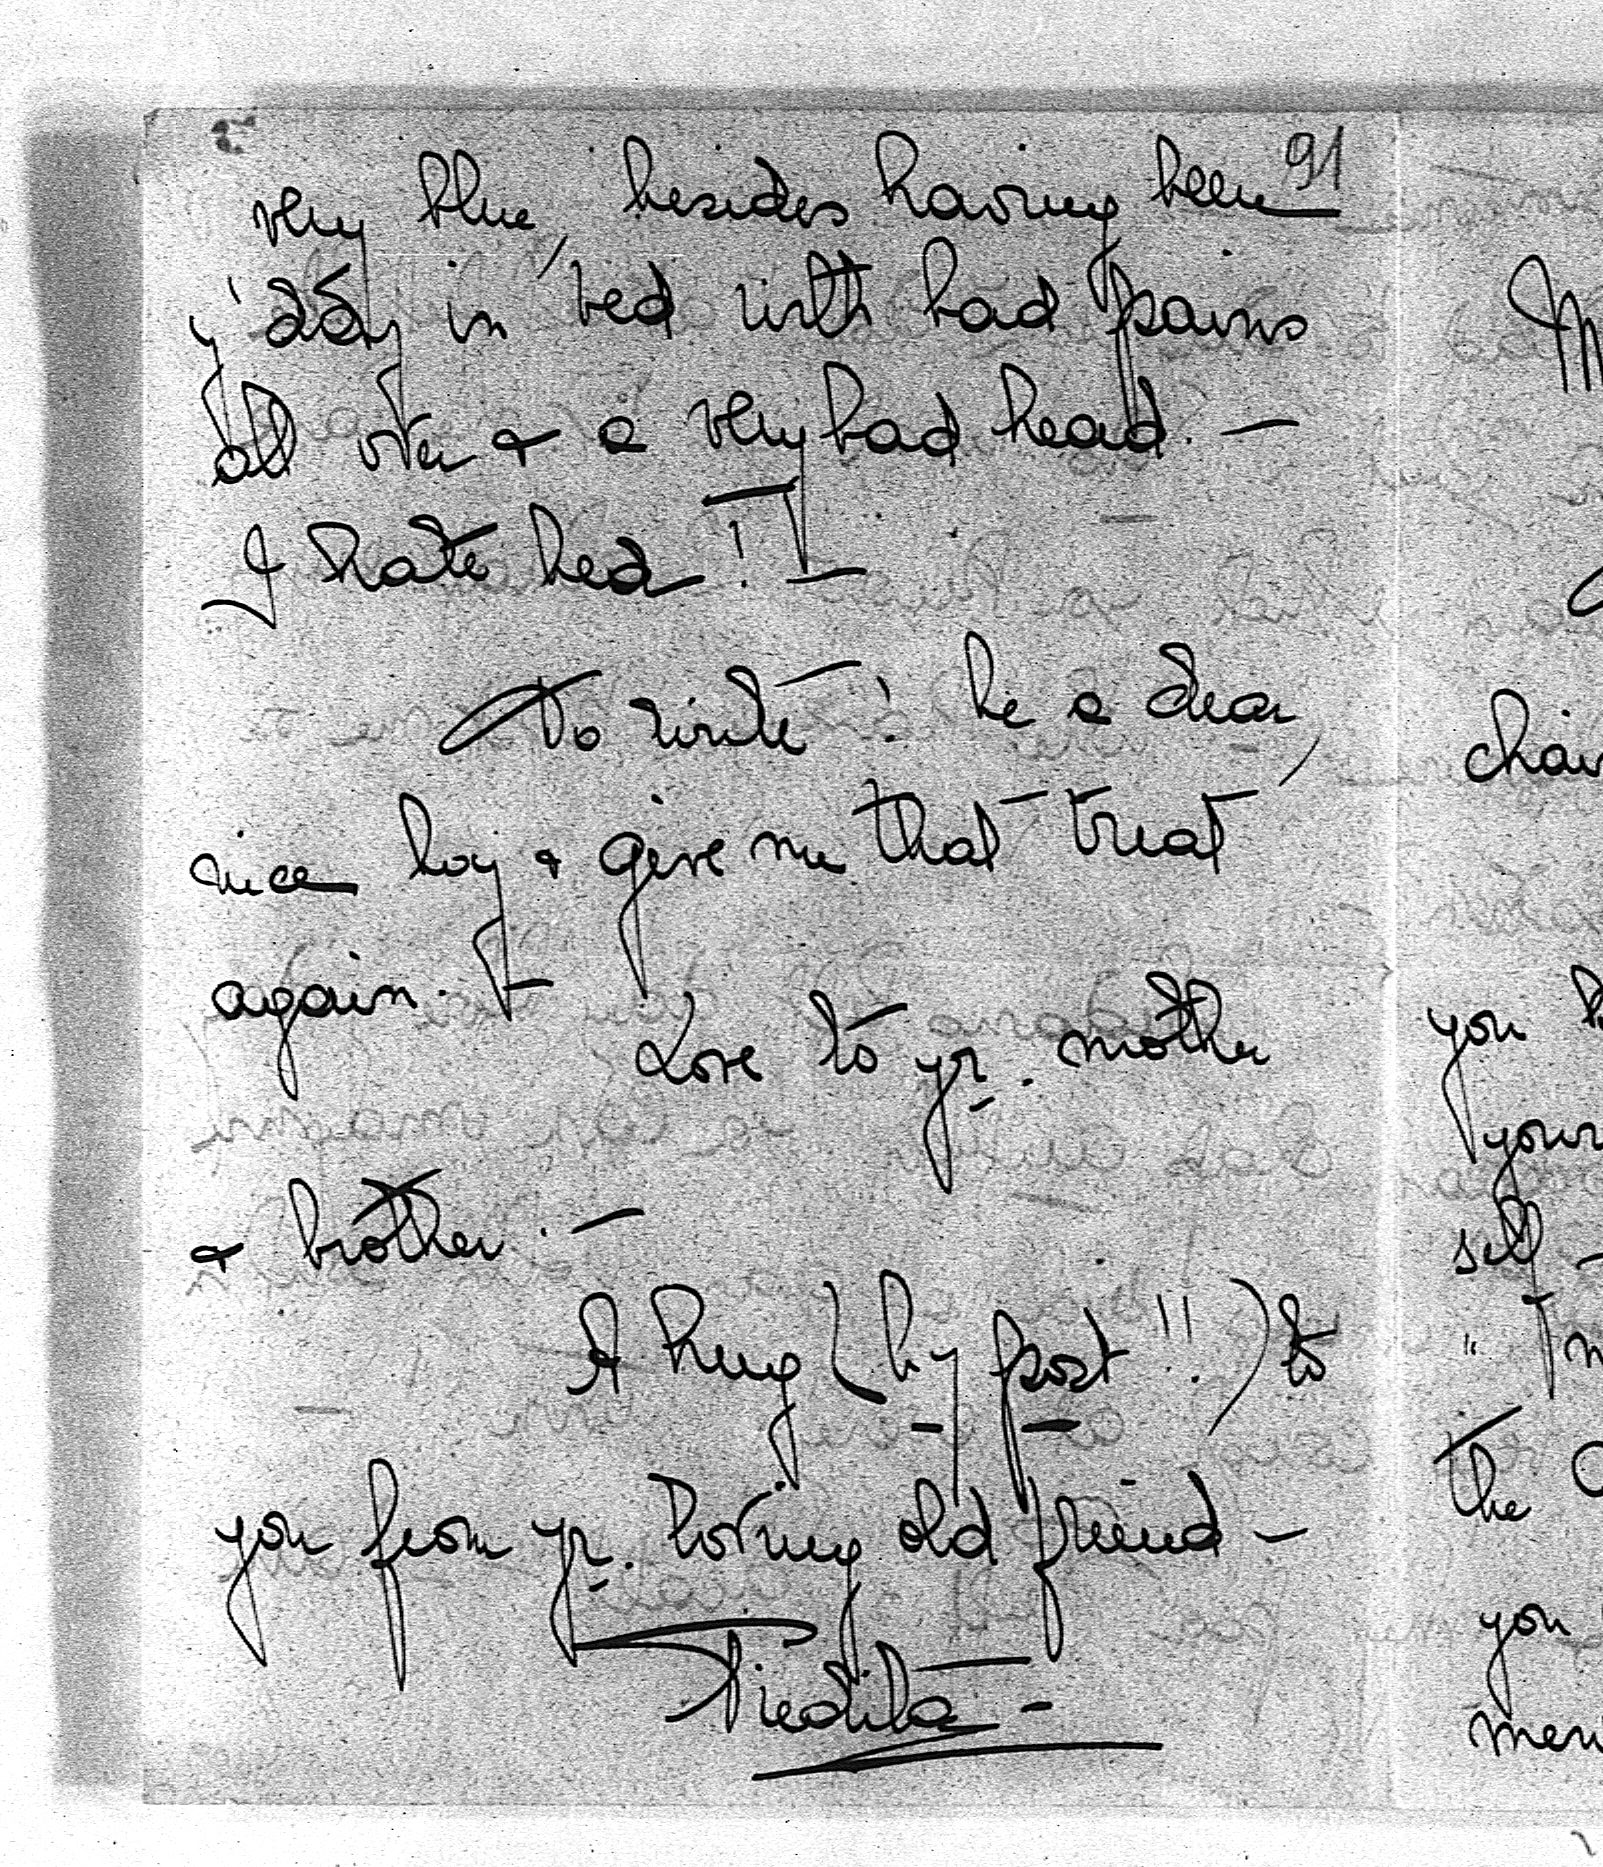 91
very blue, besides having been
y'day in bed with bad pains
all over & a very bad head. —
I hate bed! —
Do write! be a dear,
nice boy & give me that treat
again. —
Love to yr. mother
& brother. —
A hug (by post!!) to
you from yr. loving old friend —
M
chair
you
your
self —
" I
the
you